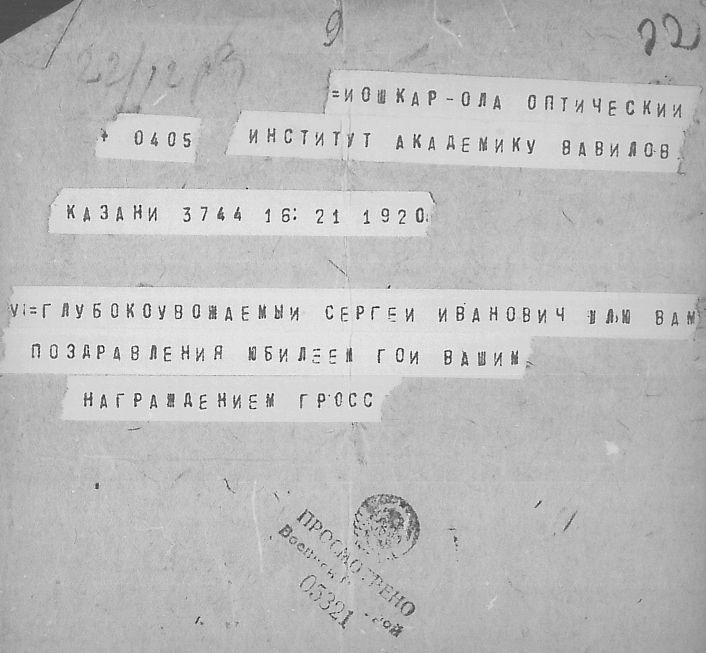 9 22
22/12
=ИОШКАР-ОЛА ОПТИЧЕСКИИ
+ 0405 ИНСТИТУТ АКАДЕМИКУ ВАВИЛОВ
КАЗАНИ 3744 16: 21 1920
=ГЛУБОКОУВОЖАЕМЫИ СЕРГЕИ ИВАНОВИЧ ШЛЮ ВАМ
ПОЗДРАВЛЕНИЯ ЮБИЛЕЕМ ГОИ ВАШИМ
НАГРАЖДЕНИЕМ ГРОСС
ПРОСМОТРЕНО
03321